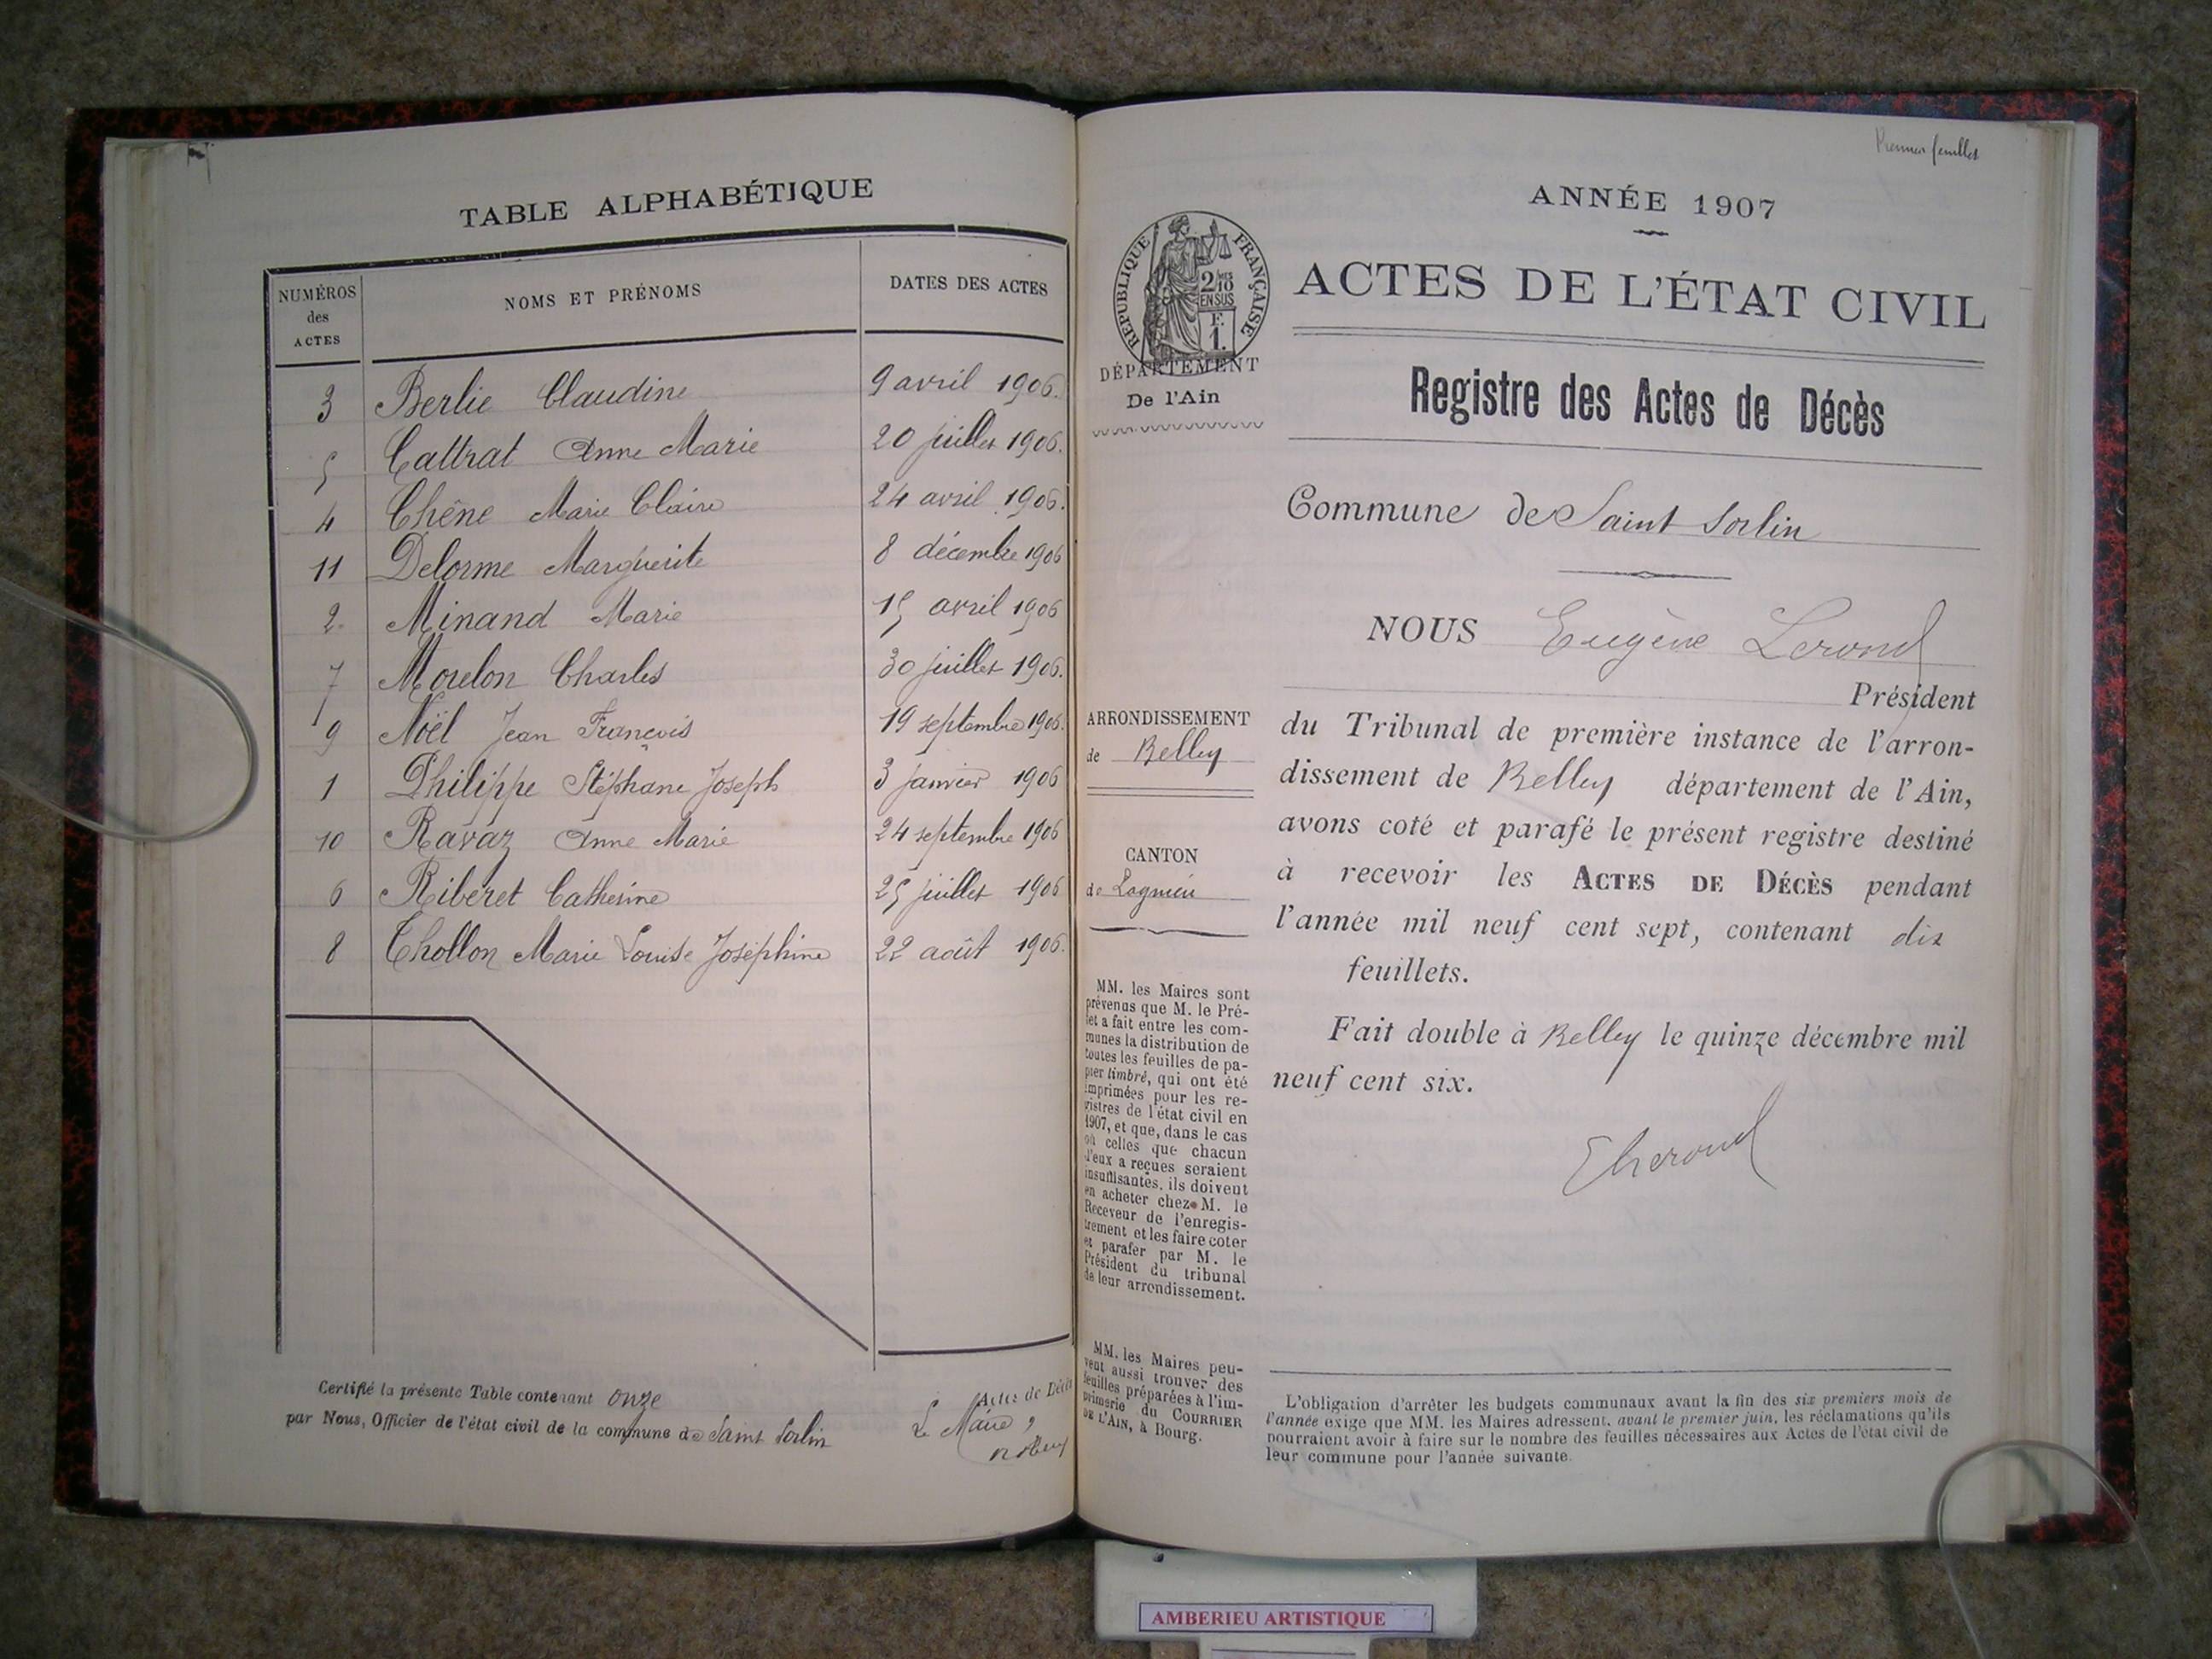 TABLE ALPHABÉTIQUE
NUMÉROS des ACTES
NOMS ET PRÉNOMS
DATES DES ACTES
3 Berlie Claudine 9 avril 1906.
5 Cattrat Anne Marie 20 juillet 1906.
4 Chêne Marie Claire 24 avril 1906.
11 Delorme Marguerite 8 décembre 1906
2 Minand Marie 15 avril 1906
7 Moulon Charles 30 juillet 1906.
9 Noël Jean François 19 septembre 1906.
1 Philippe Stéphane Joseph 3 janvier 1906
10 Ravaz Anne Marie 24 septembre 1906
6 Riberet Catherine 25 juillet 1906
8 Thollon Marie Louise Joséphine 22 août 1906.
Certifié la présente Table contenant onze Actes de Décès
par Nous, Officier de l'état civil de la commune de Saint Sorlin
Le Maire,
Premier feuillet
ANNÉE 1907
RÉPUBLIQUE FRANÇAISE
2/10 EN SUS
F. 1.
DÉPARTEMENT
De l'Ain
ACTES DE L'ÉTAT CIVIL
Registre des Actes de Décès
Commune de Saint Sorlin
NOUS Eugène Lerond
Président
du Tribunal de première instance de l'arron-
dissement de Belley département de l'Ain,
avons coté et parafé le présent registre destiné
à recevoir les ACTES DE DÉCÈS pendant
l'année mil neuf cent sept, contenant dix
feuillets.
Fait double à Belley le quinze décembre mil
neuf cent six.
ARRONDISSEMENT
de Belley
CANTON
de Lagnieu
MM. les Maires sont
prévenus que M. le Pré-
fet a fait entre les com-
munes la distribution de
toutes les feuilles de pa-
pier timbré, qui ont été
imprimées pour les re-
gistres de l'état civil en
1907, et que, dans le cas
où celles que chacun
d'eux a reçues seraient
insuffisantes, ils doivent
en acheter chez M. le
Receveur de l'enregis-
trement et les faire coter
et parafer par M. le
Président du tribunal
de leur arrondissement.
MM. les Maires peu-
vent aussi trouver des
feuilles préparées à l'im-
primerie du COURRIER
DE L'AIN, à Bourg.
L'obligation d'arrêter les budgets communaux avant la fin des six premiers mois de
l'année exige que MM. les Maires adressent, avant le premier juin, les réclamations qu'ils
pourraient avoir à faire sur le nombre des feuilles nécessaires aux Actes de l'état civil de
leur commune pour l'année suivante.
AMBERIEU ARTISTIQUE